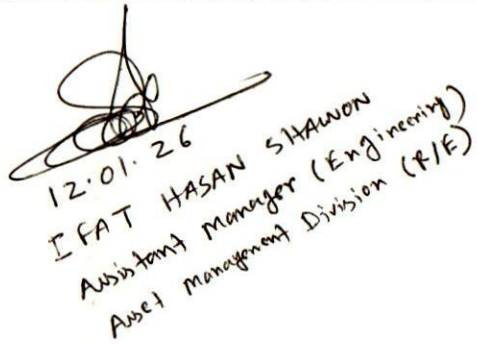 12.01.26
IFAT HASAN SHAWON
Assistant Manager (Engineering)
Asset Management Division (R/E)